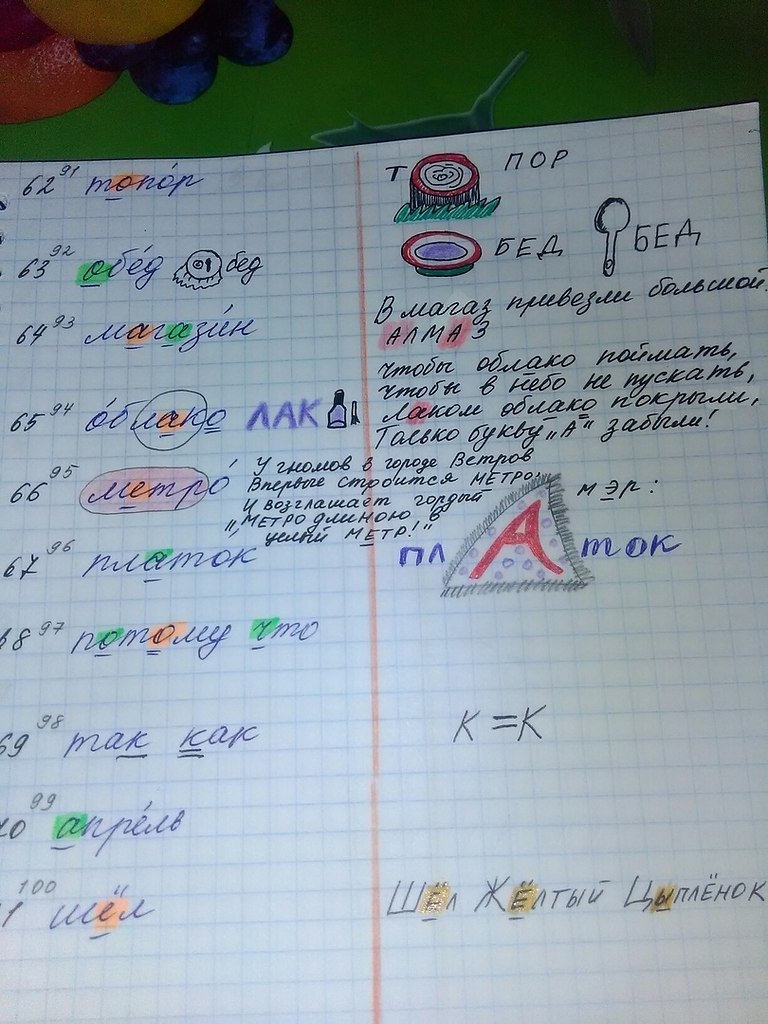 62 91 топо́р
Т ПОР
63 92 обе́д бед
БЕД БЕД
64 93 магази́н
В магаз привезли большой
АЛМАЗ
65 94 о́блако ЛАК
Чтобы облако поймать,
Чтобы в небо не пускать,
Лаком облако покрыли,
Только букву „А" забыли!
66 95 метро́
У гномов в городе Ветров
Впервые строится МЕТРО.
И возглашает гордый мэр:
„МЕТРО длиною в
целый МЕТР!"
67 96 платок
пл А ток
68 97 потому что
69 98 так как
К = К
70 99 апре́ль
71 100 шёл
Шёл Жёлтый Цыплёнок